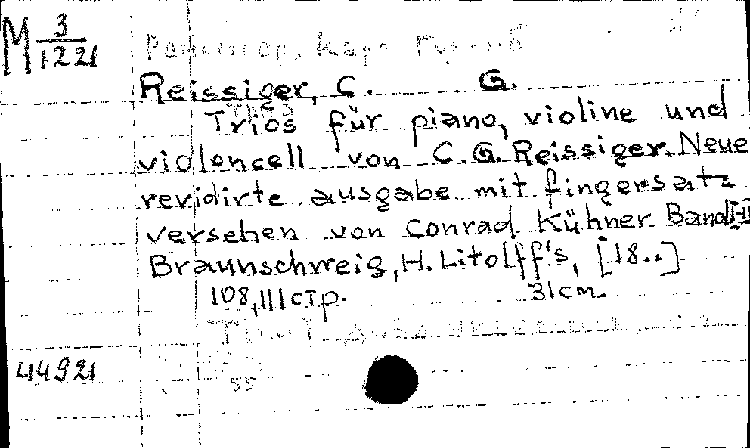 M 3/1221
Reissiger, C. G.
Trios für piano, violine und
violoncell von C. G. Reissiger. Neue
revidirte ausgabe mit fingersatz
versehen von Conrad Kühner. Band
Braunschweig, H. Litolff's, [18..]
108, 111 стр. 31 см.
44921